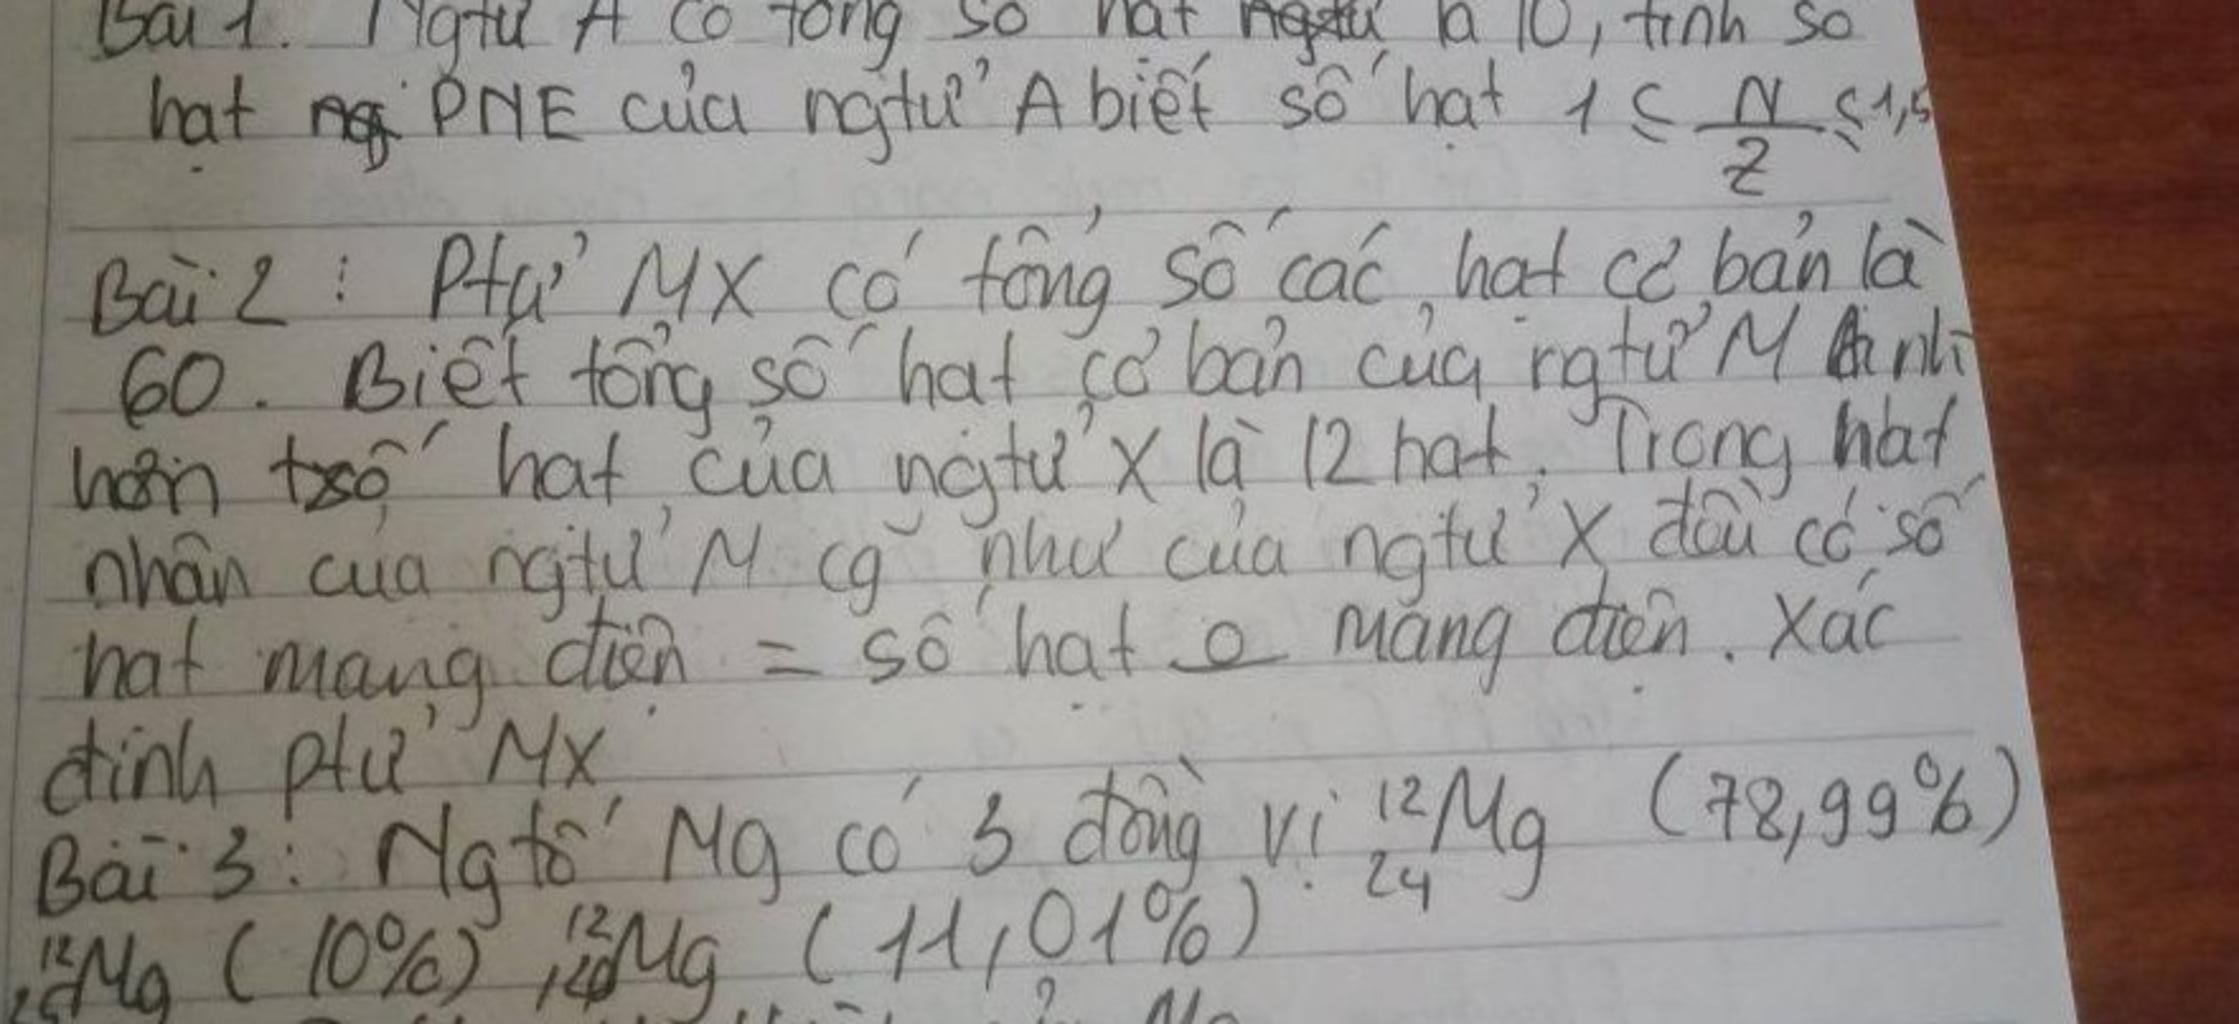 Bài 1. Ngtử A có tổng số hạt ngtử là 10, tính số
hạt PNE của ngtử A biết số hạt 1 ≤ N/Z ≤ 1,5
Bài 2 : Ptử MX có tổng số các hạt cơ bản là
60. Biết tổng số hạt cơ bản của ngtử M nhỉ
hơn tsố hạt của ngtử X là 12 hạt. Trong hạt
nhân của ngtử M cg~ như của ngtử X đều có số
hạt mang điện = số hạt o mang điện. Xác
định ptử MX
Bài 3: Ngtố Mg có 3 đồng vị ¹²₂₄Mg (78,99%)
¹²₂₅Mg (10%) , ¹²₂₆Mg (11,01%)